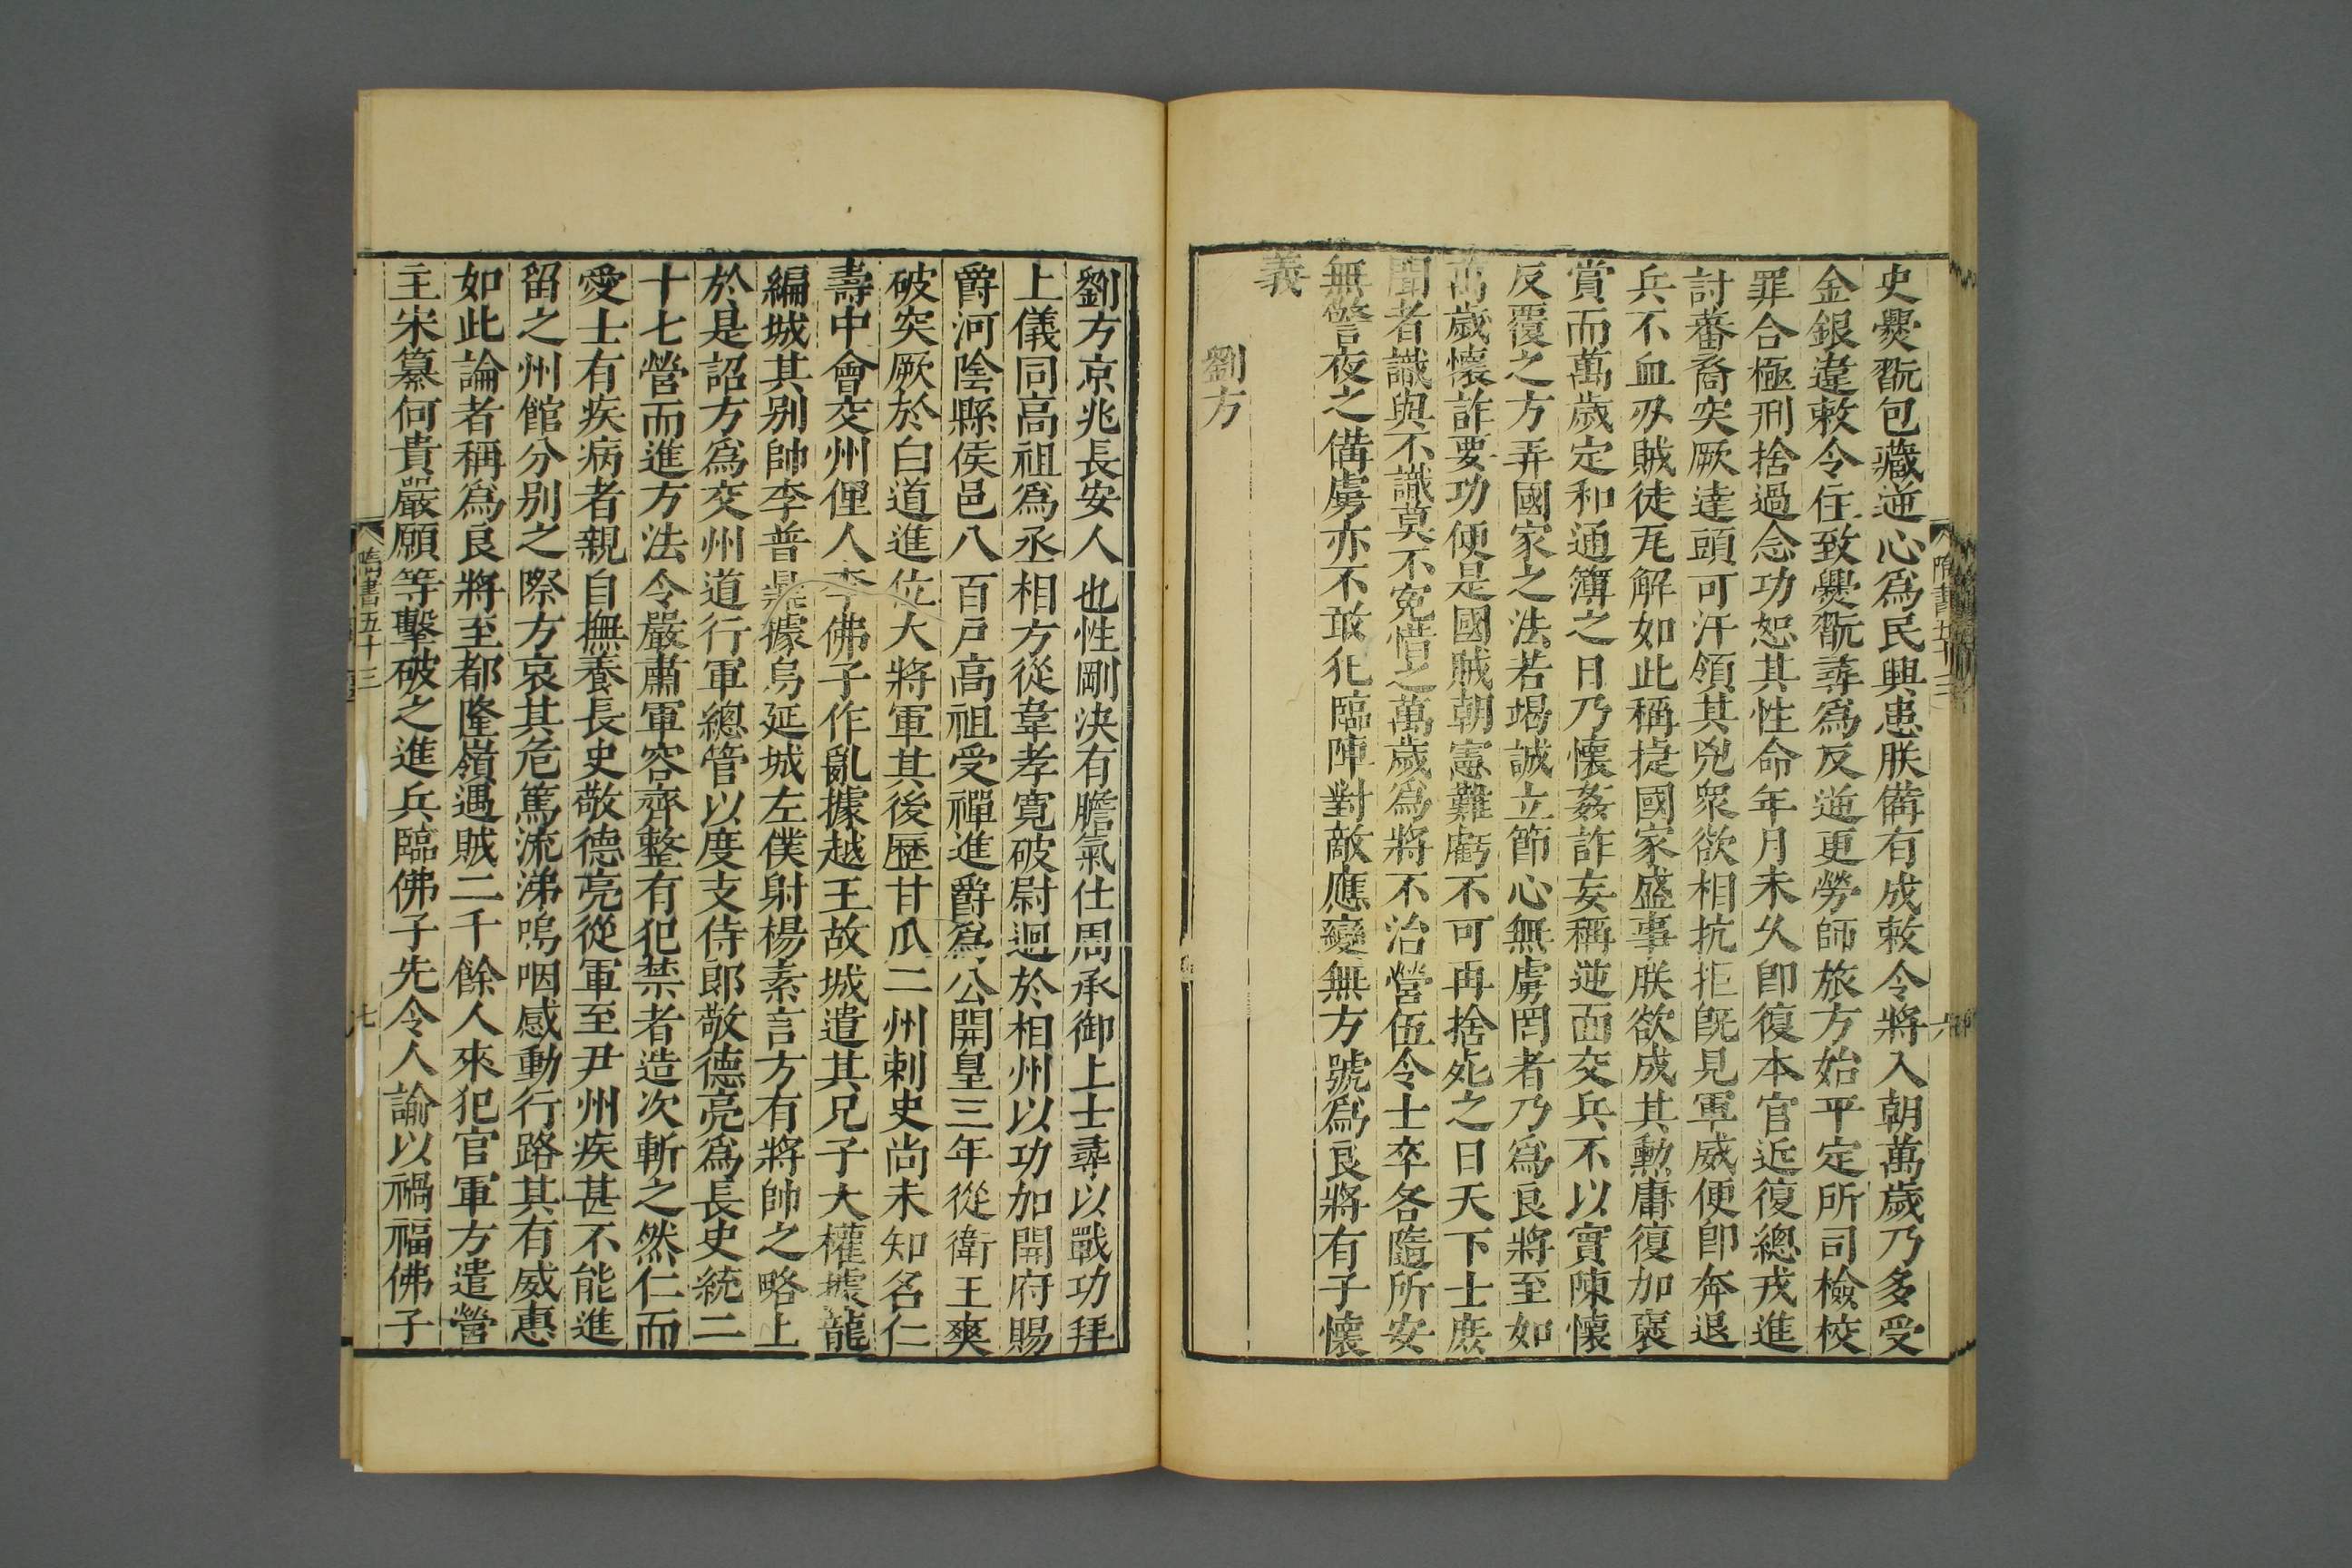 史爨翫包藏逆心爲民興患朕備有成敕令將入朝萬歲乃多受
金銀違敕令住致爨翫尋爲反逆更勞師旅方始平定所司檢校
罪合極刑捨過念功恕其性命年月未久卽復本官近復總戎進
討蕃裔突厥達頭可汗領其兇衆欲相抗拒既見軍威便卽奔退
兵不血刃賊徒瓦解如此稱捷國家盛事朕欲成其勳庸復加褒
賞而萬歲定和通簿之日乃懷姦詐妄稱逆面交兵不以實陳懷
反覆之方弄國家之法若竭誠立節心無虜罔者乃爲良將至如
萬歲懷詐要功便是國賊朝憲難虧不可再捨死之日天下士庶
聞者識與不識莫不冤惜之萬歲爲將不治營伍令士卒各隨所安
無警夜之備虜亦不敢犯臨陣對敵應變無方號爲良將有子懷
義
劉方
劉方京兆長安人也性剛決有膽氣仕周承御上士尋以戰功拜
上儀同高祖爲丞相方從韋孝寬破尉迥於相州以功加開府賜
爵河陰縣侯邑八百戶高祖受禪進爵爲公開皇三年從衛王爽
破突厥於白道進位大將軍其後歷甘瓜二州刺史尚未知名仁
壽中會交州俚人李佛子作亂據越王故城遣其兄子大權據龍
編城其別帥李普鼎據烏延城左僕射楊素言方有將帥之略上
於是詔方爲交州道行軍總管以度支侍郎敬德亮爲長史統二
十七營而進方法令嚴肅軍容齊整有犯禁者造次斬之然仁而
愛士有疾病者親自撫養長史敬德亮從軍至尹州疾甚不能進
留之州館分別之際方哀其危篤流涕嗚咽感動行路其有威惠
如此論者稱爲良將至都隆嶺遇賊二千餘人來犯官軍方遣營
主宋纂何貴嚴願等擊破之進兵臨佛子先令人諭以禍福佛子
隋書五十三
七